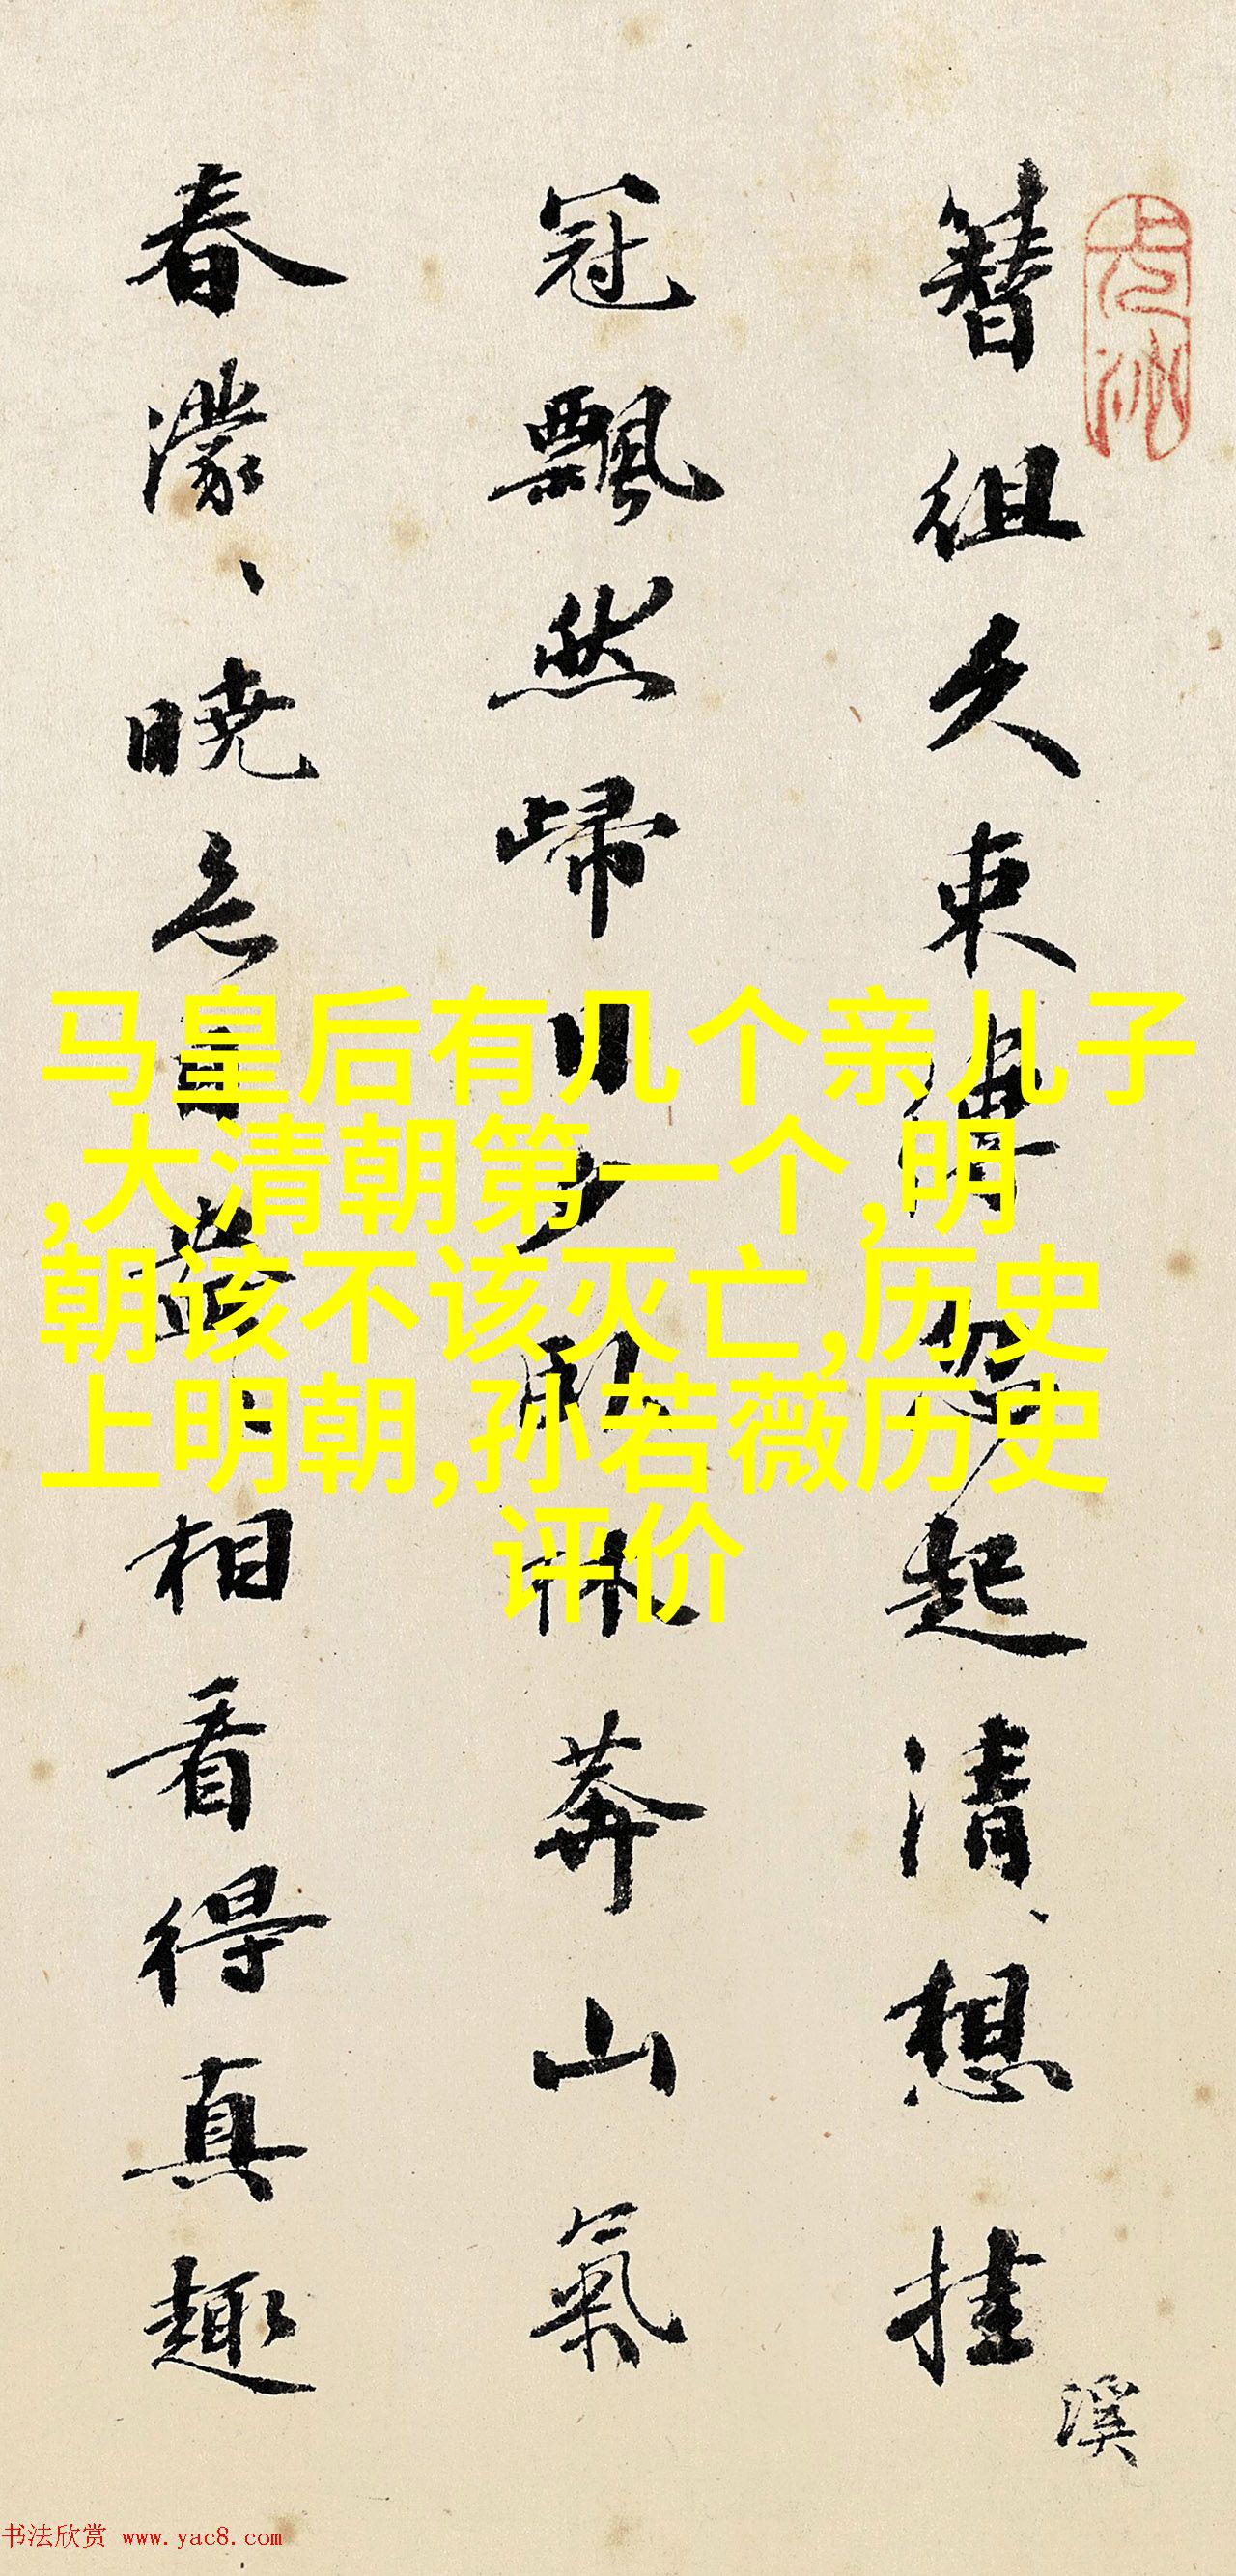 簪组久束缚忽起清、想挂
溪
冠飘然归
莽山气
春濛、晓色
相看得真趣
马皇后有几个亲儿子
,大清朝第一个,明
朝该不该灭亡,历史
上明朝,孙若薇历史
评价
书法欣赏 www.yac8.com